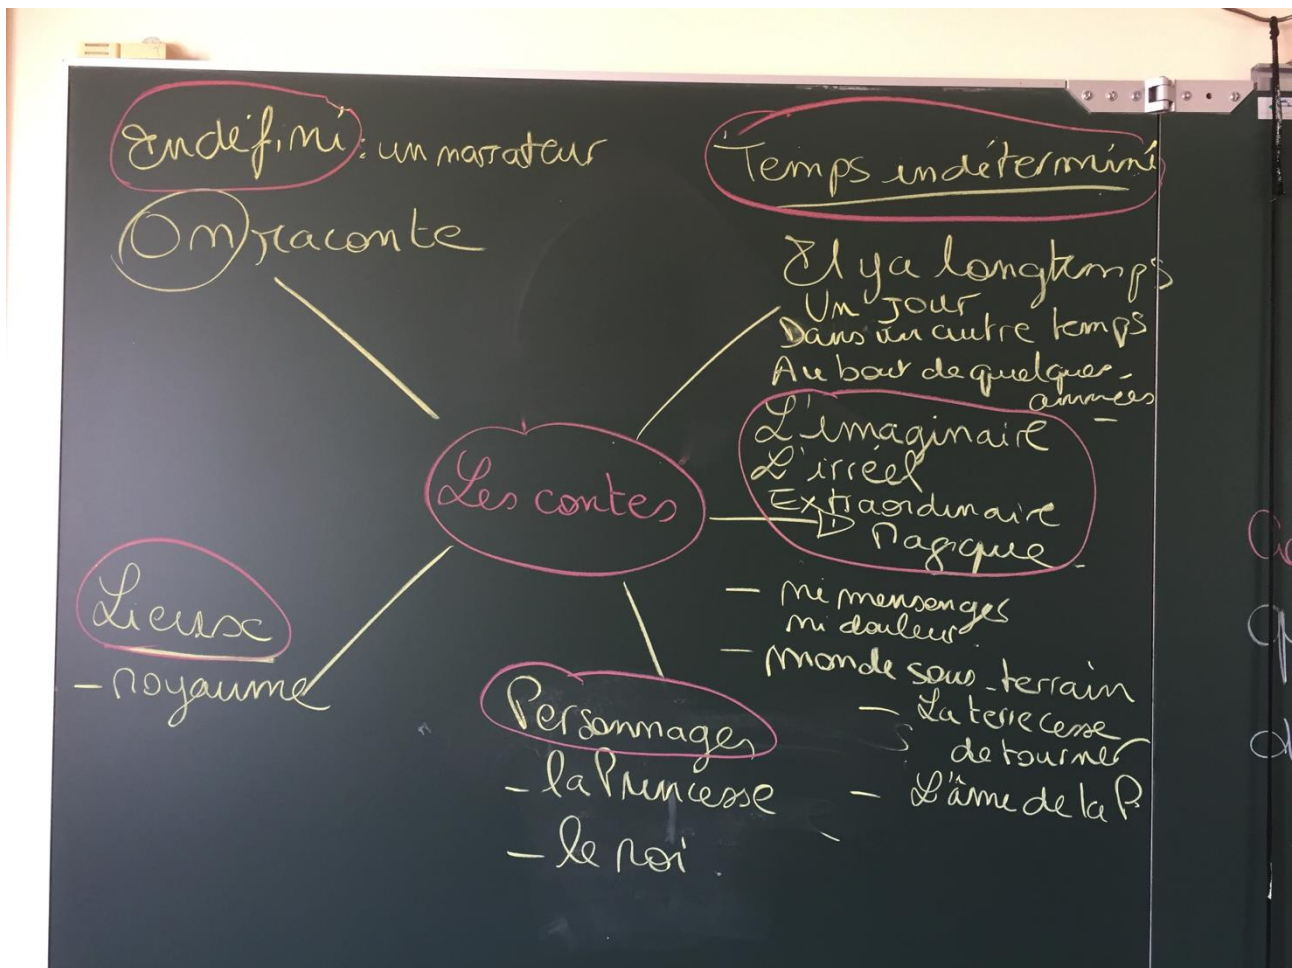 Indéfini : un narrateur
On raconte
Temps indéterminé
Il y a longtemps
Un jour
Dans un autre temps
Au bout de quelques
années
Les contes
L'imaginaire
L'irréel
Extraordinaire
Magique
- ni mensonges
ni douleur
- monde sous-terrain
- La terre cesse
de tourner
- L'âme de la P.
Lieux
- royaume
Personnages
- la Princesse
- le roi